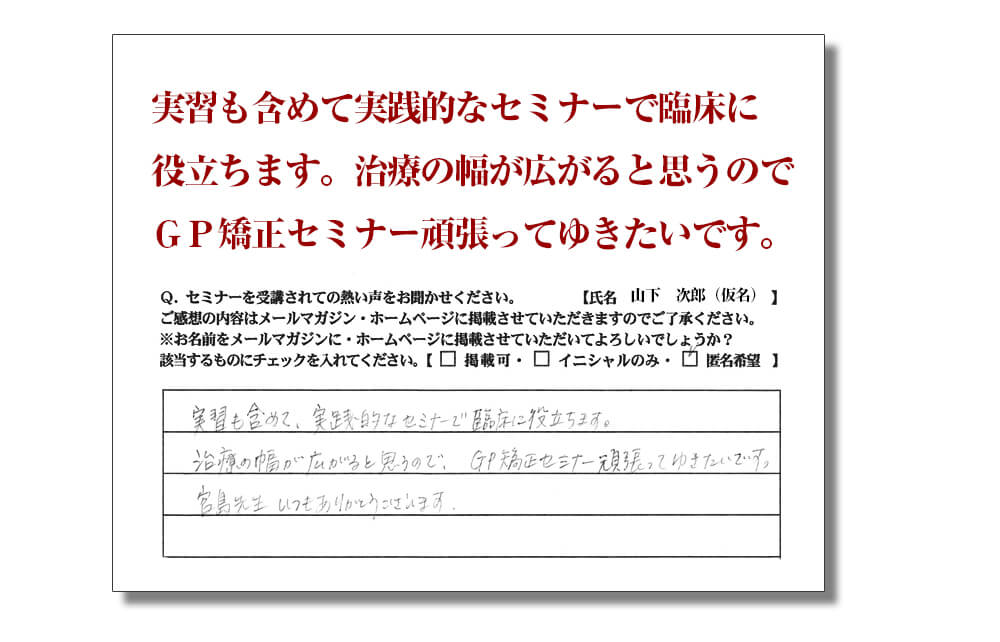 実習も含めて実践的なセミナーで臨床に
役立ちます。治療の幅が広がると思うので
ＧＰ矯正セミナー頑張ってゆきたいです。
Ｑ．セミナーを受講されての熱い声をお聞かせください。 【氏名 山下 次郎（仮名） 】
ご感想の内容はメールマガジン・ホームページに掲載させていただきますのでご了承ください。
※お名前をメールマガジンに・ホームページに掲載させていただいてよろしいでしょうか？
該当するものにチェックを入れてください。【 □ 掲載可・ □ イニシャルのみ・ ☑ 匿名希望 】
実習も含めて、実践的なセミナーで臨床に役立ちます。
治療の幅が広がると思うので、GP矯正セミナー頑張ってゆきたいです。
宮島先生いつもありがとうございます.